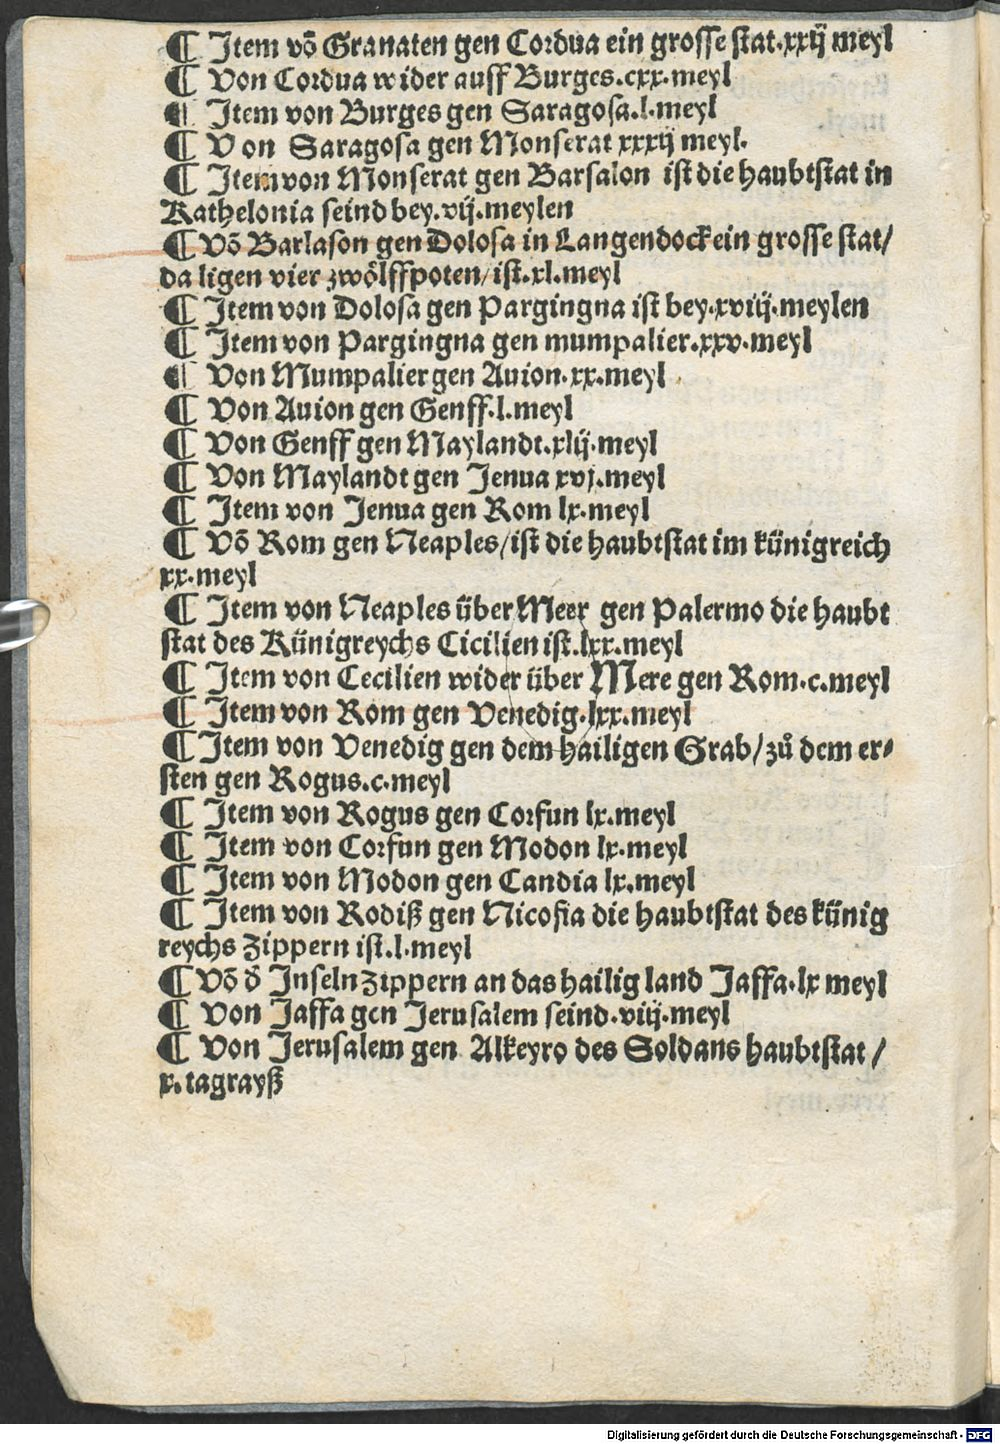 ¶ Jtem võ Granaten gen Cordua ein grosse stat.xxij meyl
¶ Von Cordua wider auff Burges.cxx.meyl
¶ Jtem von Burges gen Saragosa.l.meyl
¶ Von Saragosa gen Monserat xxxij meyl.
¶ Jtem von Monserat gen Barsalon ist die haubtstat in
Kathelonia seind bey.vij.meylen
¶ Võ Barlason gen Dolosa in Langendock ein grosse stat/
da ligen vier zwölffpoten/ist.xl.meyl
¶ Jtem von Dolosa gen Pargingna ist bey.xviij.meylen
¶ Jtem von Pargingna gen mumpalier.xxv.meyl
¶ Von Mumpalier gen Auion.xx.meyl
¶ Von Auion gen Genff.l.meyl
¶ Von Genff gen Maylandt.xlij.meyl
¶ Von Maylandt gen Jenua xvj.meyl
¶ Jtem von Jenua gen Rom lx.meyl
¶ Võ Rom gen Neaples/ist die haubtstat im künigreich
xx.meyl
¶ Jtem von Neaples über Meer gen Palermo die haubt
stat des Künigreychs Cicilien ist.lxx.meyl
¶ Jtem von Cecilien wider über Mere gen Rom.c.meyl
¶ Jtem von Rom gen Venedig.lxx.meyl
¶ Jtem von Venedig gen dem hailigen Grab/zů dem er⸗
sten gen Rogus.c.meyl
¶ Jtem von Rogus gen Corfun lx.meyl
¶ Jtem von Corfun gen Modon lx.meyl
¶ Jtem von Modon gen Candia lx.meyl
¶ Jtem von Rodiß gen Nicosia die haubtstat des künig
reychs Zippern ist.l.meyl
¶ Võ d̕ Jnseln Zippern an das hailig land Jaffa.lx meyl
¶ Von Jaffa gen Jerusalem seind.viij.meyl
¶ Von Jerusalem gen Alkeyro des Soldans haubtstat/
x.tagrayß
Digitalisierung gefördert durch die Deutsche Forschungsgemeinschaft - DFG